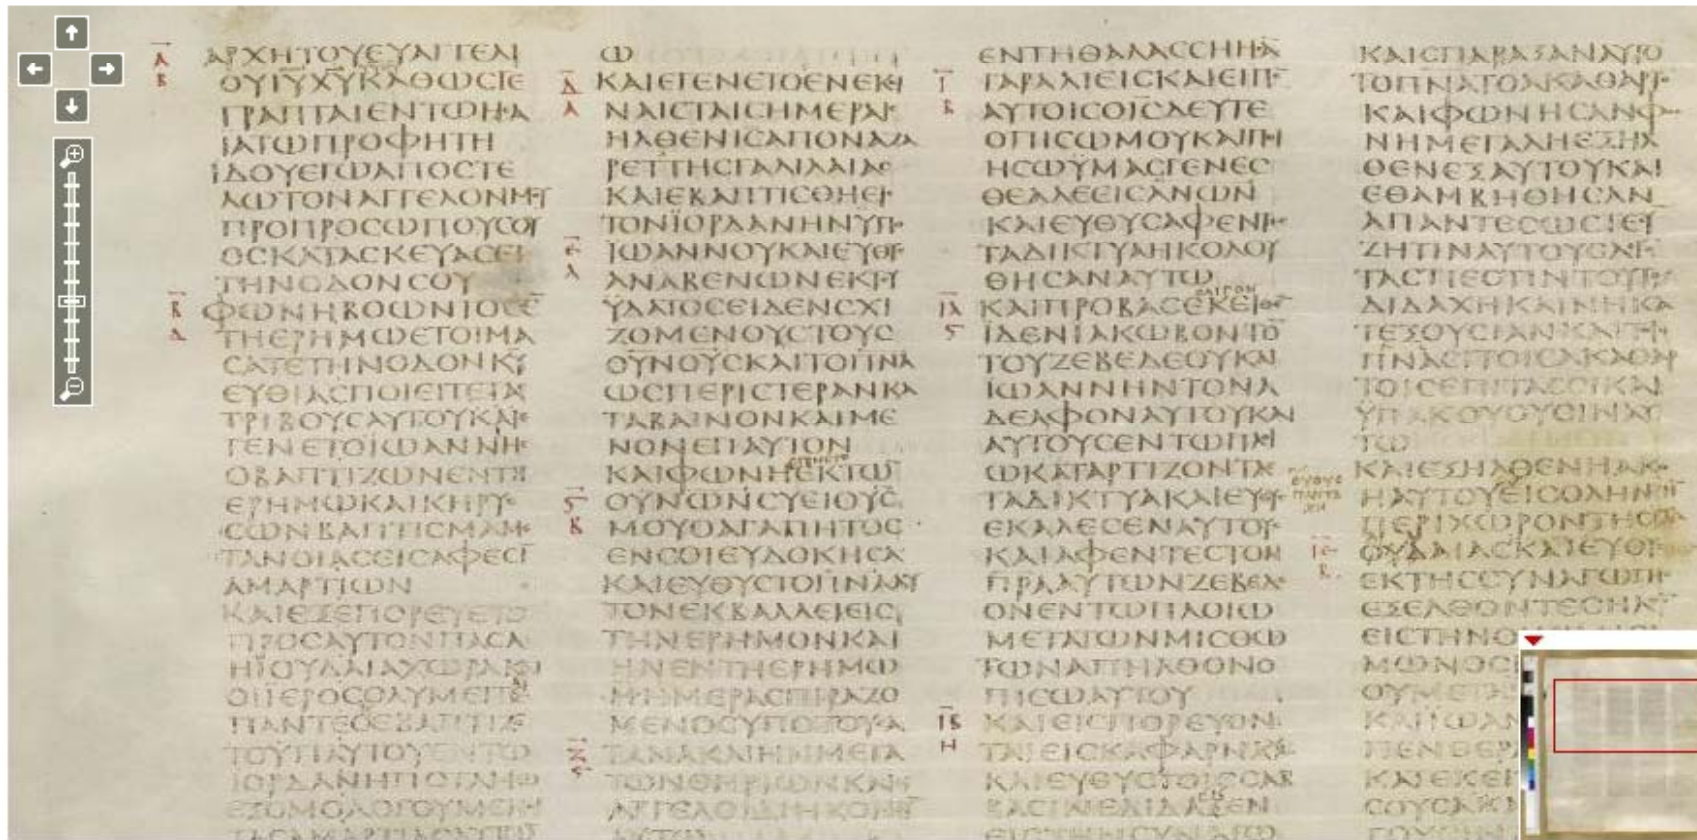 ΑΡΧΗΤΟΥΕΥΑΓΓΕΛΙ
ΟΥΙΥΧΥΚΑΘΩСΓΕ
ΓΡΑΠΤΑΙΕΝΤΩΗСΑ
ΙΑΤΩΠΡΟΦΗΤΗ
ΙΔΟΥΕΓΩΑΠΟСΤΕ
ΛΩΤΟΝΑΓΓΕΛΟΝΜΟΥ
ΠΡΟΠΡΟСΩΠΟΥСΟΥ
ΟСΚΑΤΑСΚΕΥΑСΕΙ
ΤΗΝΟΔΟΝСΟΥ
ΦΩΝΗΒΟΩΝΤΟСΕ̅
ΤΗΕΡΗΜΩΕΤΟΙΜΑ
СΑΤΕΤΗΝΟΔΟΝΚΥ
ΕΥΘΙΑСΠΟΙΕΙΤΕΤΑ
ΤΡΙΒΟΥСΑΥΤΟΥΚΑΙΕ
ΓΕΝΕΤΟΪΩΑΝΝΗС
ΟΒΑΠΤΙΖΩΝΕΝΤΗ
ΕΡΗΜΩΚΑΙΚΗΡΥС
СΩΝΒΑΠΤΙСΜΑΜΕ
ΤΑΝΟΙΑСΕΙСΑΦΕСΙ̅
ΑΜΑΡΤΙΩΝ
ΚΑΙΕΞΕΠΟΡΕΥΕΤΟ
ΠΡΟСΑΥΤΟΝΠΑСΑ
ΗΪΟΥΔΑΙΑΧΩΡΑΚΑΙ
ΟΙΪΕΡΟСΟΛΥΜΕΙΤΕ
ΠΑΝΤΕСΕΒΑΠΤΙΖΟ̅
ΤΟΥΠΑΥΤΟΥΕΝΤΩ
ΙΟΡΔΑΝΗΠΟΤΑΜΩ
ΕΞΟΜΟΛΟΓΟΥΜΕΝΟΙ
ΤΑСΑΜΑΡΤΙΑСΑΥΤΩ̅
Ω
ΚΑΙΕΓΕΝΕΤΟΕΝΕΚΙ
ΝΑΙСΤΑΙСΗΜΕΡΑΙС
ΗΛΘΕΝΙСΑΠΟΝΑΖΑ
ΡΕΤΤΗСΓΑΛΙΛΑΙΑС
ΚΑΙΕΒΑΠΤΙСΘΗΕΙС
ΤΟΝΪΟΡΔΑΝΗΝΥΠΟ
ΙΩΑΝΝΟΥΚΑΙΕΥΘΥС
ΑΝΑΒΕΝΩΝΕΚΤΟΥ
ΫΔΑΤΟСΕΙΔΕΝСΧΙ
ΖΟΜΕΝΟΥСΤΟΥС
ΟΥΝΟΥСΚΑΙΤΟΠΝΑ
ΩСΠΕΡΙСΤΕΡΑΝΚΑ
ΤΑΒΑΙΝΟΝΚΑΙΜΕ
ΝΟΝΕΠΑΥΤΟΝ
ΚΑΙΦΩΝΗΕΚΤΩ̅
ΟΥΝΩΝСΥΕΙΟΥС
ΜΟΥΟΑΓΑΠΗΤΟС
ΕΝСΟΙΕΥΔΟΚΗСΑ
ΚΑΙΕΥΘΥСΤΟΠΝΑΑΥ
ΤΟΝΕΚΒΑΛΛΕΙΕΙС
ΤΗΝΕΡΗΜΟΝΚΑΙ
ΗΝΕΝΤΗΕΡΗΜΩ
Μ̅ΗΜΕΡΑСΠΙΡΑΖΟ
ΜΕΝΟСΥΠΟΤΟΥСΑ
ΤΑΝΑΚΑΙΗΝΜΕΤΑ
ΤΩΝΘΗΡΙΩΝΚΑΙΟΙ
ΑΓΓΕΛΟΙΔΙΗΚΟΝΟΥ̅
ΑΥΤΩ
ΕΝΤΗΘΑΛΑССΗΗСΑ̅
ΓΑΡΑΛΙΕΙСΚΑΙΕΙΠΕ̅
ΑΥΤΟΙСΟΙСΔΕΥΤΕ
ΟΠΙСΩΜΟΥΚΑΙΠΟΙ
ΗСΩΫΜΑСΓΕΝΕС
ΘΕΑΛΕΕΙСΑΝΩΝ
ΚΑΙΕΥΘΥСΑΦΕΝΤΕС
ΤΑΔΙΚΤΥΑΗΚΟΛΟΥ
ΘΗСΑΝΑΥΤΩ
ΚΑΙΠΡΟΒΑСΕΚΕΙΘΕ̅
ΪΔΕΝΪΑΚΩΒΟΝΤΟ̅
ΤΟΥΖΕΒΕΔΕΟΥΚΑΙ
ΙΩΑΝΝΗΝΤΟΝΑ
ΔΕΛΦΟΝΑΥΤΟΥΚΑΙ
ΑΥΤΟΥСΕΝΤΩΠΛΟΙ
ΩΚΑΤΑΡΤΙΖΟΝΤΑС
ΤΑΔΙΚΤΥΑΚΑΙΕΥΘΥС
ΕΚΑΛΕСΕΝΑΥΤΟΥС
ΚΑΙΑΦΕΝΤΕСΤΟΝ
ΠΡΑΑΥΤΩΝΖΕΒΕΔΕ
ΟΝΕΝΤΩΠΛΟΙΩ
ΜΕΤΑΤΩΝΜΙСΘΩ
ΤΩΝΑΠΗΛΘΟΝΟ
ΠΙСΩΑΥΤΟΥ
ΚΑΙΕΙСΠΟΡΕΥΟΝ
ΤΑΙΕΙСΚΑΦΑΡΝΑΟΥ
ΚΑΙΕΥΘΥСΤΟΙССΑΒ
ΒΑСΙΝΕΔΙΔΑΞΕΝ
ΕΙСΤΗΝСΥΝΑΓΩ
ΚΑΙСΠΑΡΑΞΑΝΑΥΤΟ
ΤΟΠΝΑΤΟΑΚΑΘΑΡΤΟ
ΚΑΙΦΩΝΗСΑΝΦΩ
ΝΗΜΕΓΑΛΗΕΞΗΛ
ΘΕΝΕΞΑΥΤΟΥΚΑΙ
ΕΘΑΜΒΗΘΗСΑΝ
ΑΠΑΝΤΕСΩСΤΕСΥ
ΖΗΤΙΝΑΥΤΟΥСΛΕΓΟ̅
ΤΑСΤΙΕСΤΙΝΤΟΥΤΟ
ΔΙΔΑΧΗΚΑΙΝΗΚΑ
ΤΕΞΟΥСΙΑΝΚΑΙΤΟΙС
ΠΝΑСΙΤΟΙСΑΚΑΘΑΡ
ΤΟΙСΕΠΙΤΑССΙΚΑΙ
ΫΠΑΚΟΥΟΥСΙΝΑΥ
ΤΩ
ΚΑΙΕΞΗΛΘΕΝΗΑΚΟ
ΗΑΥΤΟΥΕΙСΟΛΗΝΤΗ̅
ΠΕΡΙΧΩΡΟΝΤΗС
ΟΥΔΑΙΑСΚΑΙΕΥΘΥС
ΕΚΤΗССΥΝΑΓΩΓΗС
ΕΞΕΛΘΟΝΤΕСΗΛΘ
ΕΙСΤΗΝΟ
ΜΩΝΟС
ΟΥΜΕΤ
ΚΑΙΪΩΑΝ
ΠΕΝΘΕΡ
ΚΑΙΕΚΕΙ
СΟΥСΑ